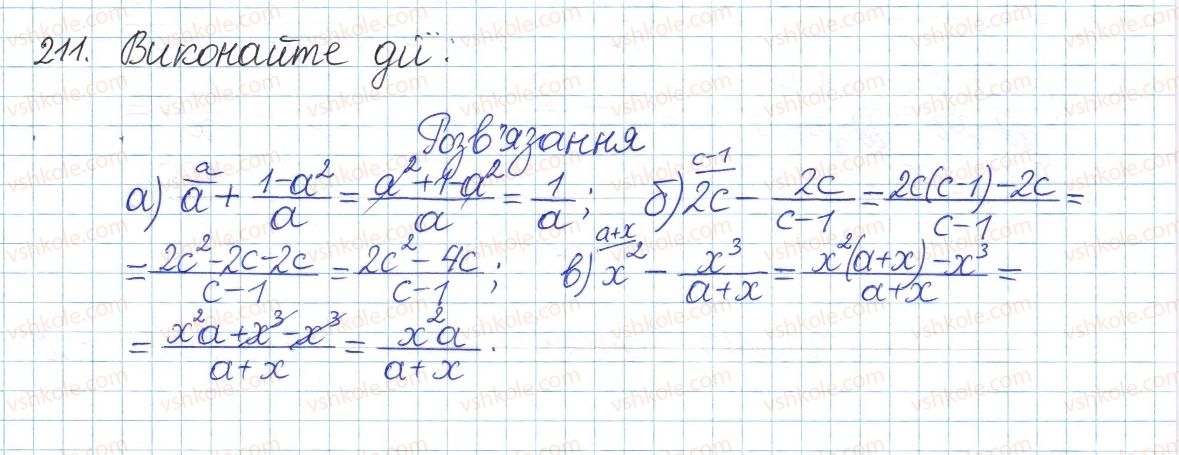 211. Виконайте дії:
Розв'язання
а) a^a + (1-a²)/a = (a²+1-a²)/a = 1/a; б) 2c^(c-1) - 2c/(c-1) = (2c(c-1)-2c)/(c-1) =
= (2c²-2c-2c)/(c-1) = (2c²-4c)/(c-1); в) x²^(a+x) - x³/(a+x) = (x²(a+x)-x³)/(a+x) =
= (x²a+x³-x³)/(a+x) = x²a/(a+x).